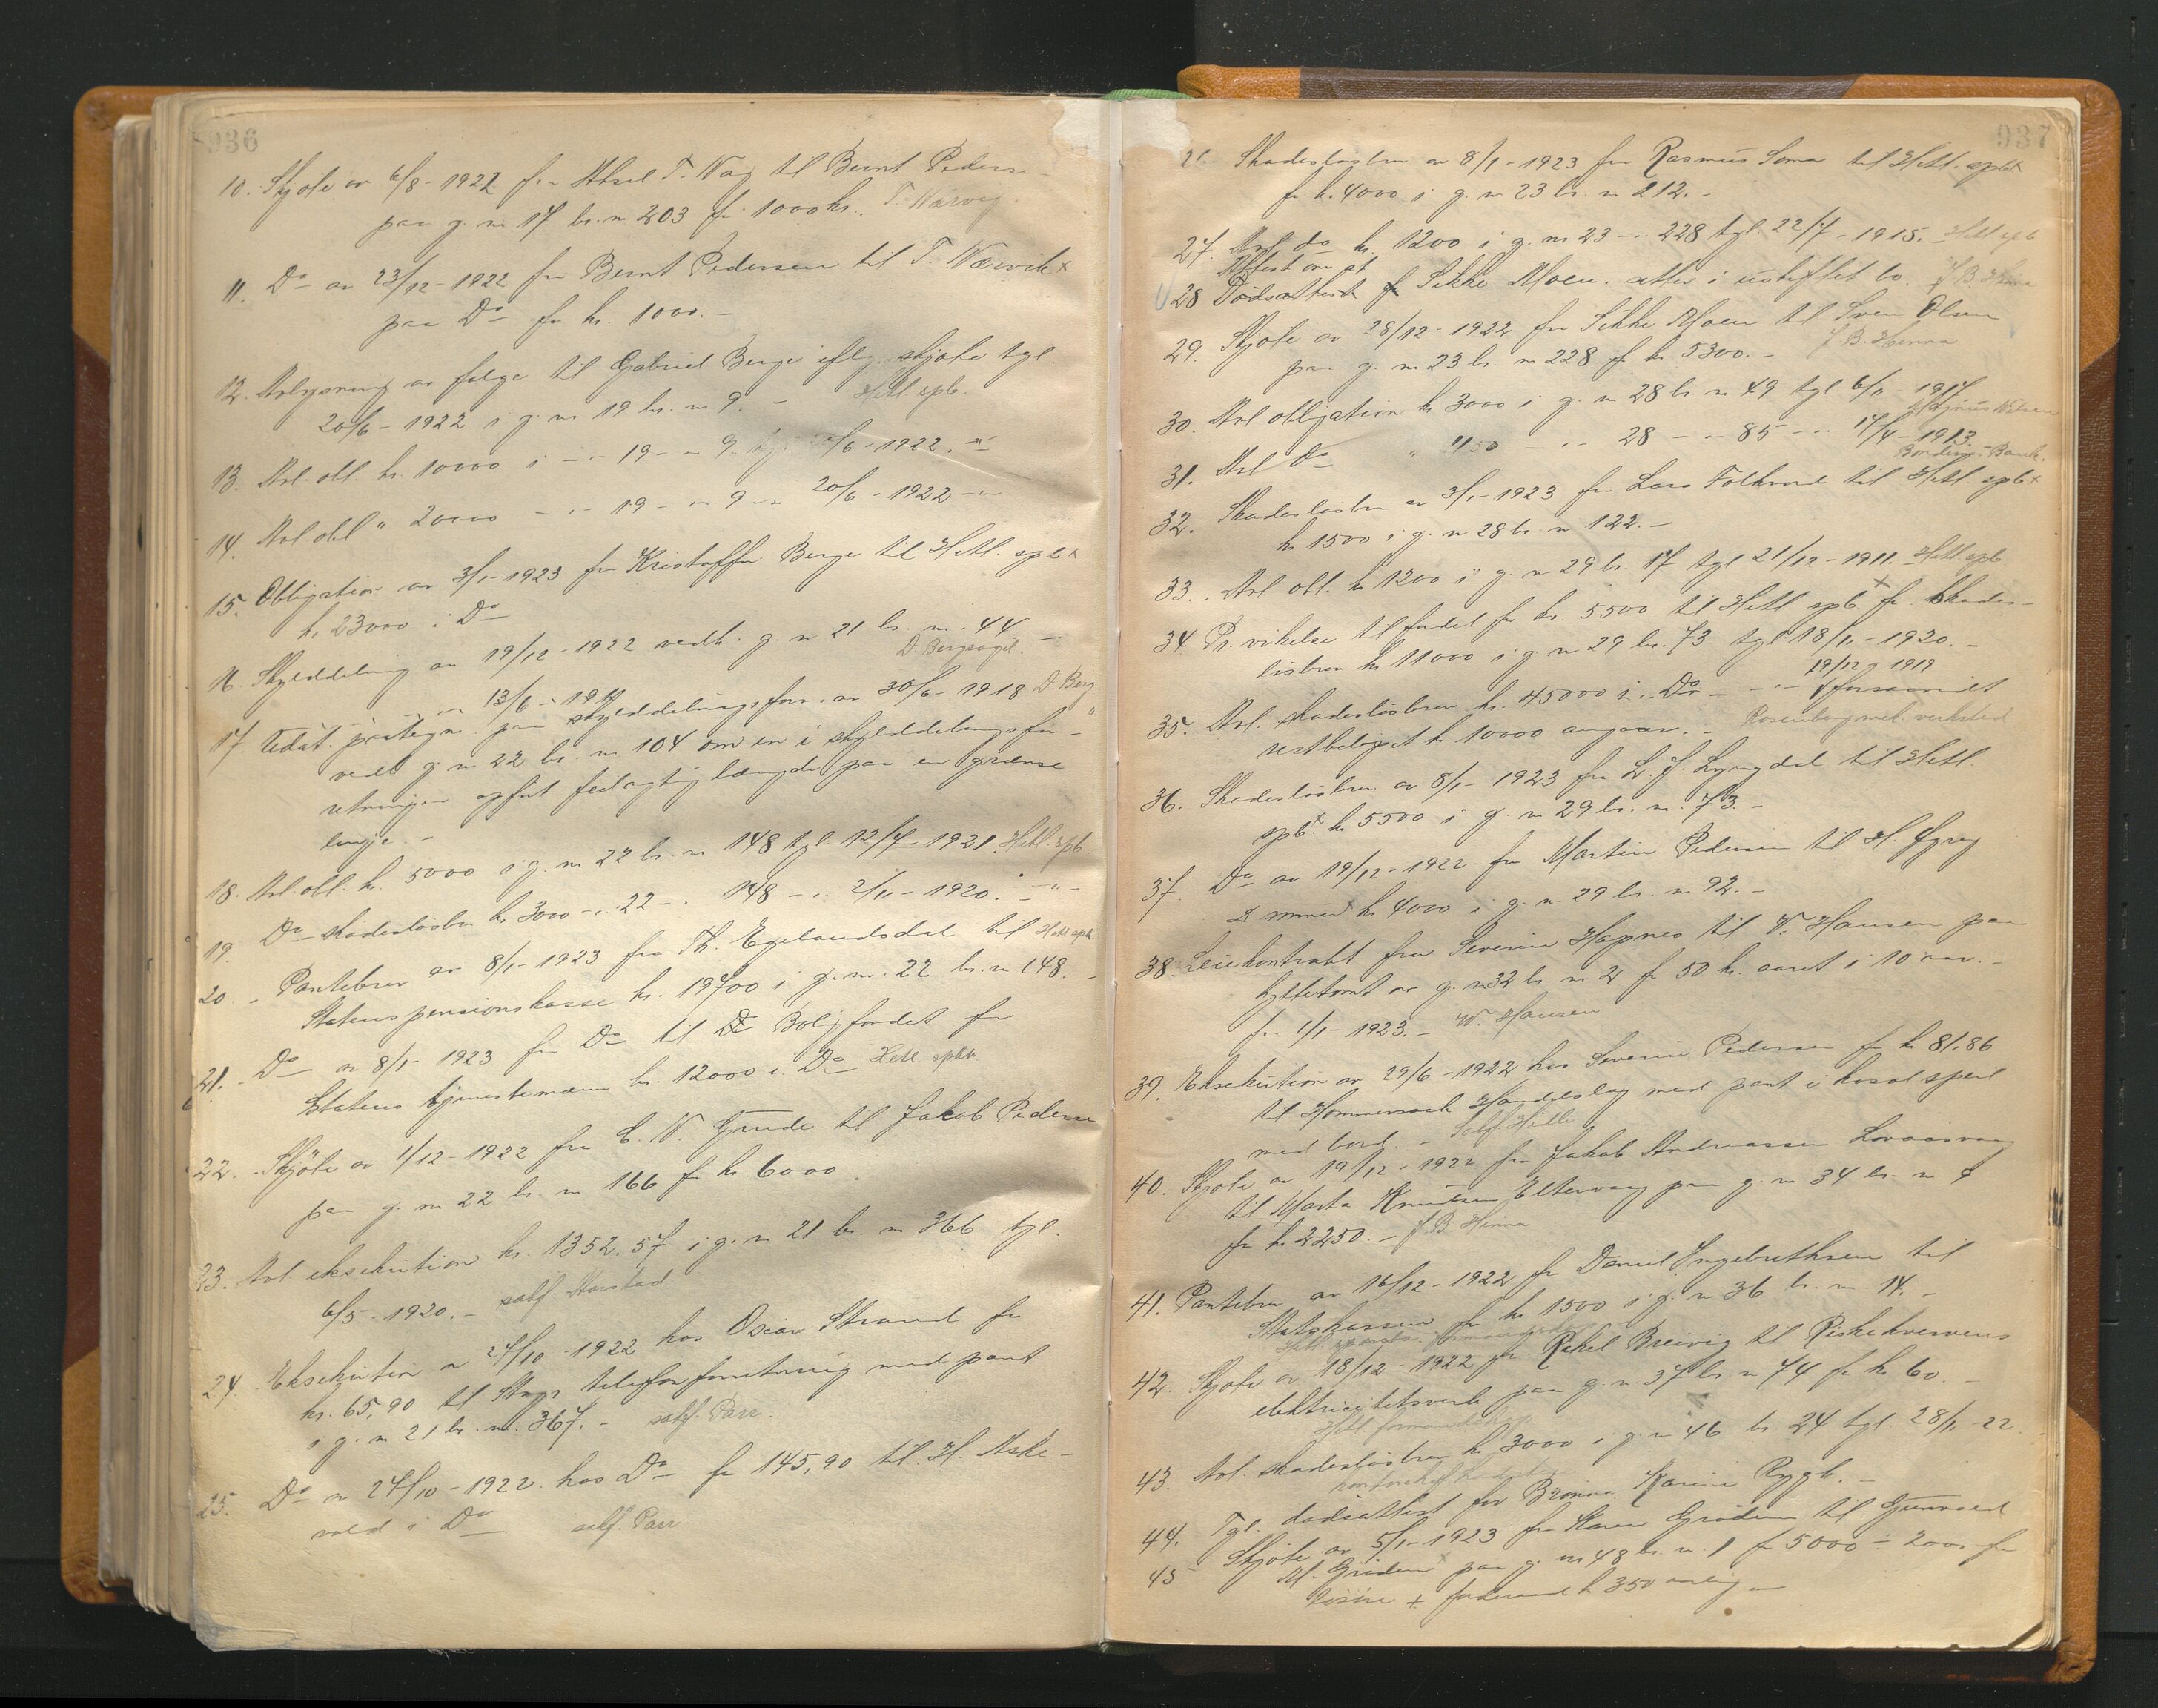 936
10. Skjøte av 6/8 - 1922 fra Aksel T. Vag til Bernt Pedersen
paa g. nr 17 br. nr 203 for 1000 kr. T. Nærvig.
11. Do av 23/12 - 1922 fra Bernt Pedersen til T. Nærvik x
paa Do for kr. 1000. -
12. Avlysning av følge til Gabriel Berge iflg. skjøte tgl.
20/6 - 1922 i g. nr 19 br. nr 9. - Hetl. spb.
13. Avl. obl. kr. 10000 i - " - 19 - " 9. tgl. /6 - 1922. - " -
14. Avl obl " 20000 - " - 19 - " 9 - " 20/6 - 1922 - " -
15. Obligation av 3/1 - 1923 fra Kristoffer Berge til Hetl. spb x
kr. 23000 i Do
16. Skylddeling av 19/12 - 1922 vedk. g. nr 21 br. nr. 44 -
D. Bergsagel.
13/6 - 1919
17 Udat. påtegn. paa skylddelingsforr. av 30/6 - 1918 D. Berg
vedk g. nr 22 br. nr 104 om en i skylddelingsfor-
retningen opført feilagtig længde paa en grænse
linje. -
18. Avl. obl. kr. 5000 i g. nr 22 br. nr 148 tgl. 12/7 - 1921 Hetl. spb.
19. Do skadesløsbr. kr. 3000 - " 22 - " 148 - " 2/11 - 1920. - " -
20. - Pantebrev av 8/1 - 1923 fra Th. Egelandsdal til Hetl spk.
Statens pensionskasse kr. 19700 i g. nr. 22 br. nr 148. -
21. - Do av 8/1 - 1923 fra Do til Do Boligfondet for
Statens tjenestemænn kr. 12000 i Do Hetl. spbk
22. - Skjøte av 1/12 - 1922 fra C. N. Grude til Jakob Pedersen
paa g. nr 22 br. nr 166 for kr 6000.
23. Avl eksekution kr. 1352.57 i g. nr 21 br. nr 366 tgl.
6/5 - 1920. - sakf. Haustad
24. Eksekution av 24/10 - 1922 hos Oscar Strand for
kr. 65,90 til Stgs telefonforretning med pant
i g. nr 21 br. nr. 367. - sakf. Parr.
25. Do av 24/10 - 1922 hos Do for 145,90 til H. Aske-
vold i Do sakf. Parr
937
26. Skadesløsbrev av 8/1 - 1923 fra Rasmus Soma til Hetl. spb x
for kr. 4000 i g. nr 23 br. nr 212. -
27. Avl. do kr. 1200 i g. nr 23 - " 228 tgl 22/7 - 1915. Hetl spb
Attest om at
28 Dødsattest f Sikke Moen. sitter i uskiftet bo. J. B. Hinna
29. Skjøte av 28/12 - 1922 fra Sikke Moen til Sven Olsen
paa g. nr 23 br. nr 228 for kr 5300. - J. B. Hinna
30. Avl obligation kr 3000 i g. nr 28 br. nr 49 tgl. 6/11 - 1917.
Magnus Nilsen
31. Avl Do " 1150 - " 28 - " 85 - " 17/4 - 1913.
Bank.
32. Skadesløsbrev av 3/1 - 1923 fra Lars Folkvord til Hetl. spb x
kr 1500 i g. nr 28 br. nr 122. -
33. Avl. obl. kr 1200 i g. nr 29 br. 17 tgl 21/12 - 1911. Hetl spb
34 Pr. vikelse til fordel for kr. 5500 til Hetl spb. x for skades-
løsbrev kr 11000 i g. nr 29 br. 73 tgl 18/11 - 1920. -
35. Avl. skadesløsbrev kr. 45000 i Do - " - 19/12 1919 forsaavidt
restbeløpet kr 10000 angaar. - Rosenberg mek. verksted
36. Skadesløsbrev av 8/1 - 1923 fra L. J. Lyngdal til Hetl.
spb. x kr 5500 i g. nr 29 br. nr. 73. -
37. Do av 19/12 - 1922 fra Martin Pedersen til H. Gyrey
& sønner x kr 4000 i g. nr 29 br. nr 92. -
38. Leiekontrakt fra Severin Hapnes til W. Hansen paa
hyttetomt av g. nr 32 br. nr 2 for 50 kr. aaret i 10 aar. -
fra 1/1 - 1923. - W. Hansen
39. Eksekution av 29/6 - 1922 hos Severin Pedersen for kr 81.86
til Hommersaak Handelslag med pant i kosol speil
med bord. - Sakf. Hille
40. Skjøte av 19/12 - 1922 fra Jakob Andreassen Lovaasvang
til Marta Knutsen Eltervaag paa g. nr 34 br. nr 4
for kr 2250. - J. B. Hinna
41. Pantebrev av 16/12 - 1922 fra Daniel Ingebrethsen til
Statskassen for kr 1500 i g. nr 36 br. nr. 14. -
42. Skjøte av 18/12 - 1922 fra Rakel Breivig til Riskekvervens
elektricitetsverk paa g. nr 37 br nr 74 for kr 60. -
Hetl formandskap
43. Avl. skadesløsbrev kr 3000 i g. nr 46 br 24 tgl. 28/11 - 22
44. Tgl. dødsattest for Brønna Karine Rygh. -
45 Skjøte av 5/1 - 1923 fra Karen Grødem til Gunvald
M. Grødem paa g. nr 48 br. nr. 1 for 5000 ÷ 2000 for
løsøre + føderaad kr 350 aarlig -